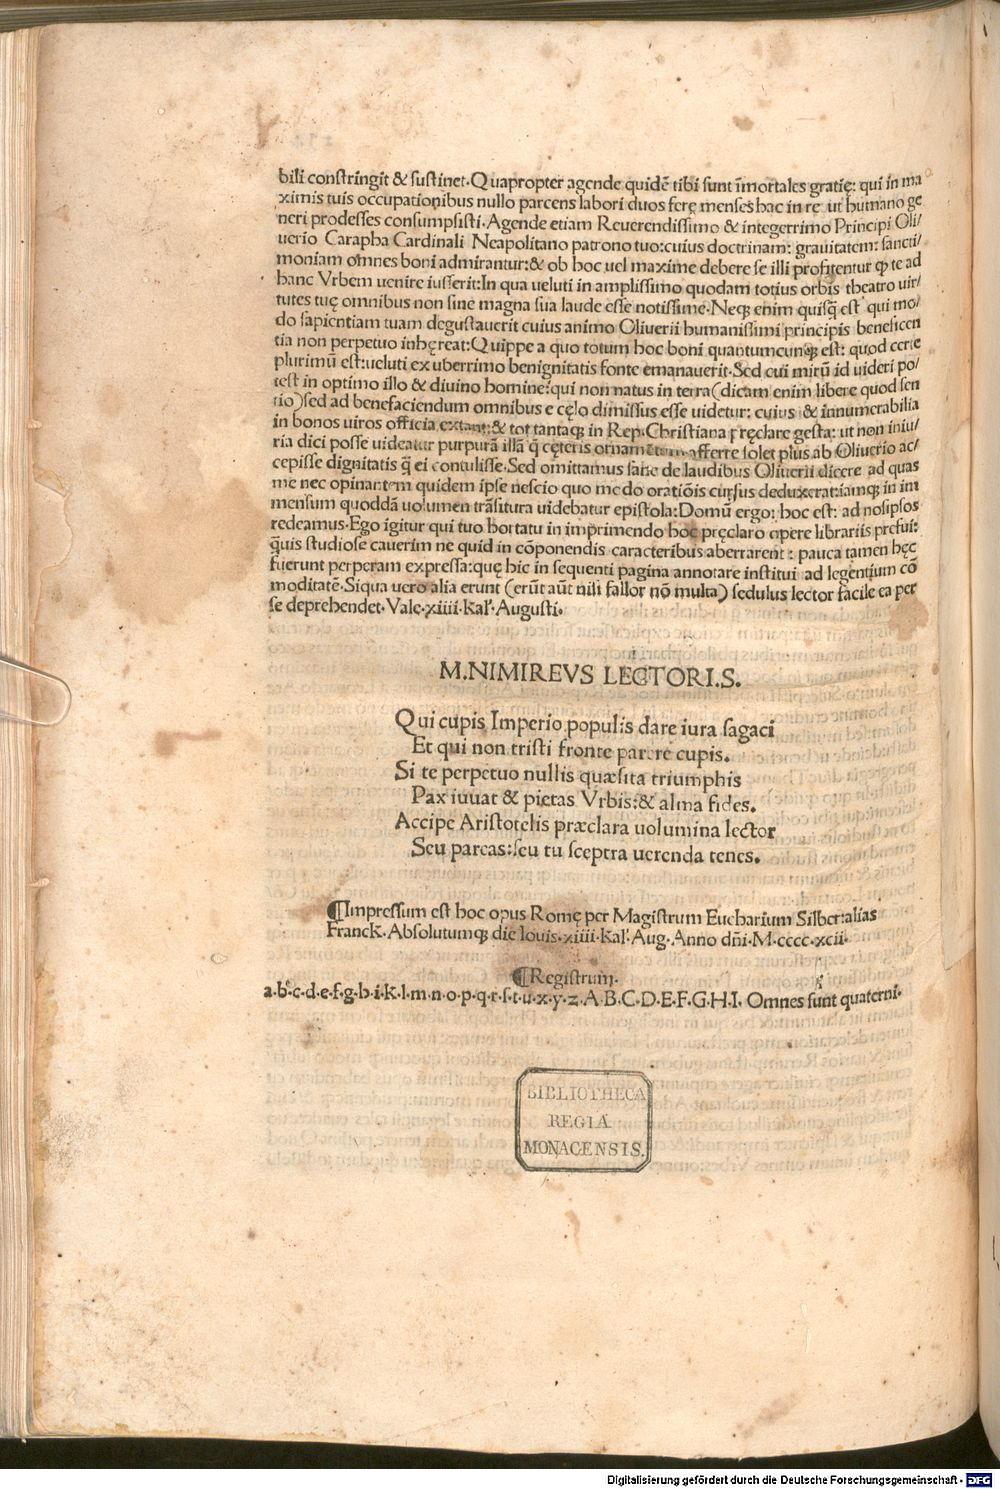 bili constringit & sustinet. Quapropter agende quidē tibi sunt īmortales gratię: qui in ma
ximis tuis occupationibus nullo parcens labori duos ferę menses hac in re ut humano ge
neri prodesses consumpsisti. Agende etiam Reuerendissimo & integerrimo Principi Oli/
uerio Carapha Cardinali Neapolitano patrono tuo: cuius doctrinam: grauitatem: sancti/
moniam omnes boni admirantur: & ob hoc uel maxime debere se illi profitentur ꝙ te ad
hanc Vrbem uenire iusserit: In qua ueluti in amplissimo quodam totius orbis theatro uir/
tutes tuę omnibus non sine magna sua laude esse notissime. Neqȝ enim quisq̄ est qui mo/
do sapientiam tuam degustauerit cuius animo Oliuerii humanissimi principis beneficen
tia non perpetuo inhęreat: Quippe a quo totum hoc boni quantumcunqȝ est: quod certe
plurimū est: ueluti ex uberrimo benignitatis fonte emanauerit. Sed cui mirū id uideri po/
test in optimo illo & diuino homine: qui non natus in terra (dicam enim libere quod sen
tio) sed ad benefaciendum omnibus e cęlo dimissus esse uidetur: cuius & innumerabilia
in bonos uiros officia extant: & tot tantaqȝ in Rep. Christiana pręclare gesta: ut non iniu/
ria dici posse uideatur purpurā illā q̄ cęteris ornamētum afferre solet plus ab Oliuerio ac/
cepisse dignitatis q̄ ei contulisse. Sed omittamus sane de laudibus Oliuerii dicere ad quas
me nec opinantem quidem ipse nescio quo modo oratiōis cursus deduxerat: iamqȝ in im
mensum quoddā uolumen trāsitura uidebatur epistola: Domū ergo: hoc est: ad nosipsos
redeamus. Ego igitur qui tuo hortatu in imprimendo hoc pręclaro opere librariis prefui:
q̄uis studiose cauerim ne quid in cōponendis caracteribus aberrarent: pauca tamen hęc
fuerunt perperam expressa: quę hic in sequenti pagina annotare institui ad legentium cō
moditatē. Siqua uero alia erunt (erūt aūt nili fallor nō multa) sedulus lector facile ea per
se deprehendet. Vale. xiiii. kal'. Augusti.
M. NIMIREVS LECTORI. S.
Qui cupis Imperio populis dare iura sagaci
Et qui non tristi fronte parere cupis.
Si te perpetuo nullis quæsita triumphis
Pax iuuat & pietas Vrbis: & alma fides.
Accipe Aristotelis præclara uolumina lector
Seu pareas: seu tu sceptra uerenda tenes.
¶Impressum est hoc opus Romę per Magistrum Eucharium Silber: alias
Franck. Absolutumqȝ die Iouis. xiiii. kal'. Aug. Anno dn̄i. M. cccc. xcii.
¶Registrum.
a. b. c. d. e. f. g. h. i. k. l. m. n. o. p. q. r. s. t. u. x. y. z. A. B. C. D. E. F. G. H. I. Omnes sunt quaterni.
BIBLIOTHECA
REGIA
MONACENSIS.
Digitalisierung gefördert durch die Deutsche Forschungsgemeinschaft - DFG